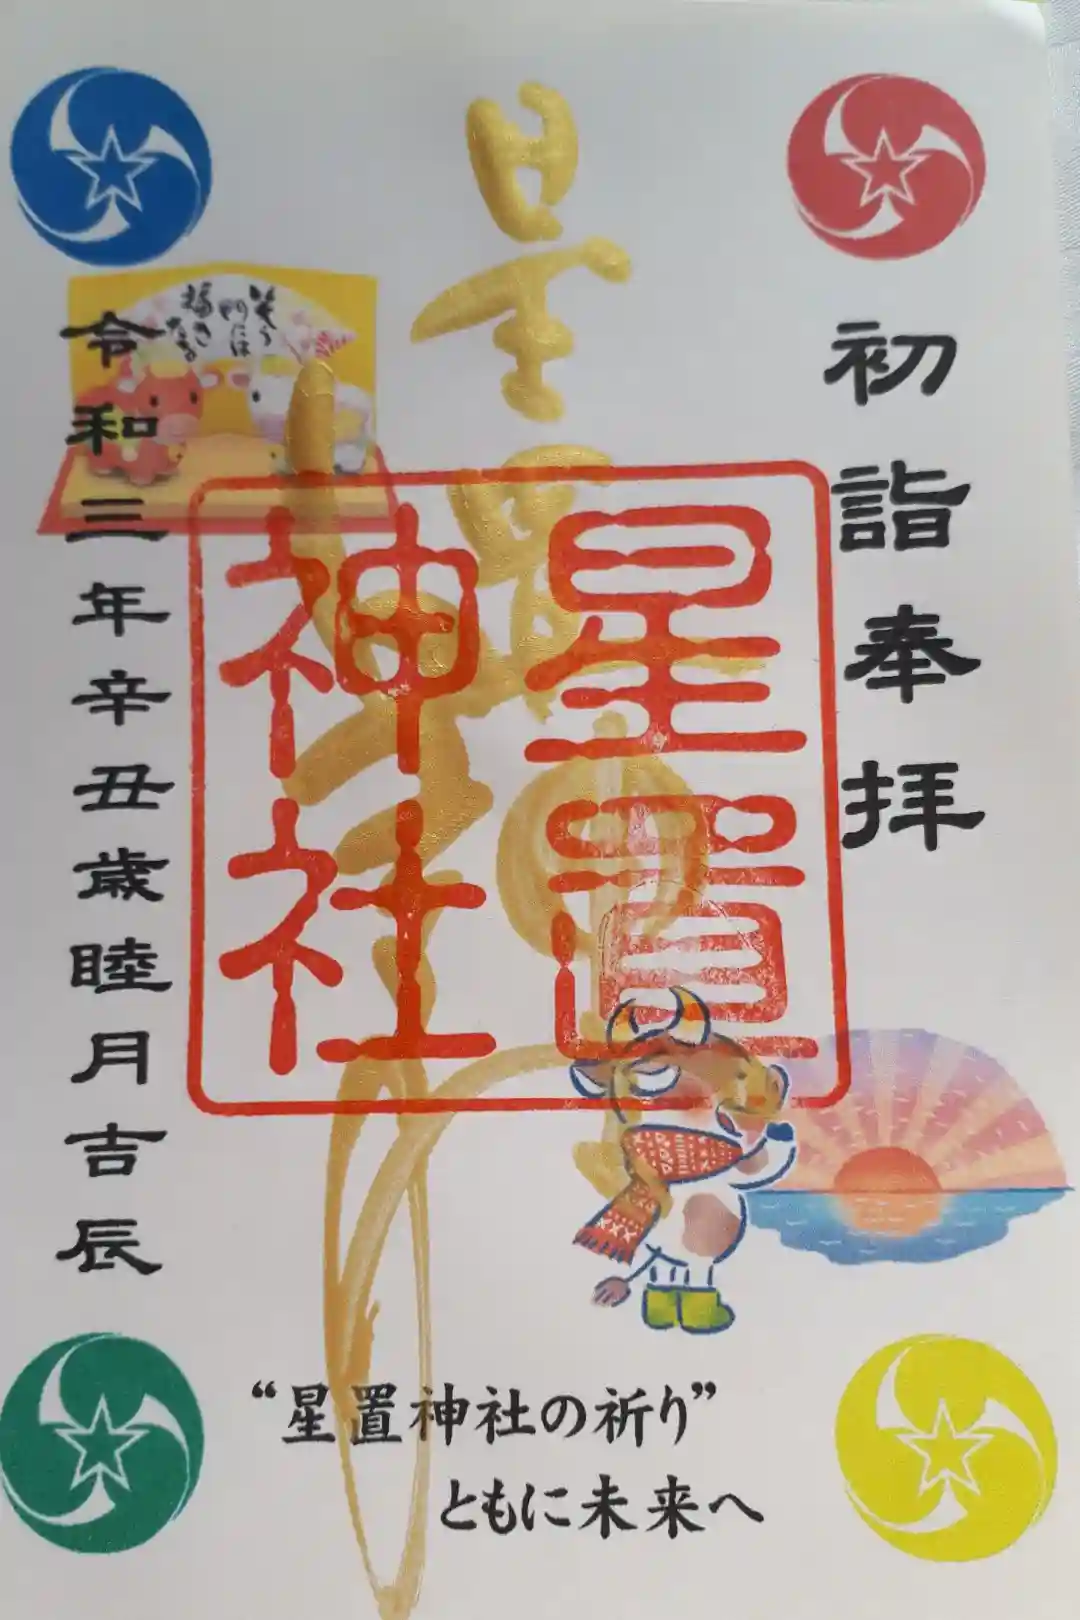 初詣奉拝
星置神社
星置神社
令和三年辛丑歳睦月吉辰
笑う
門には
福き
たる
“星置神社の祈り”
ともに未来へ